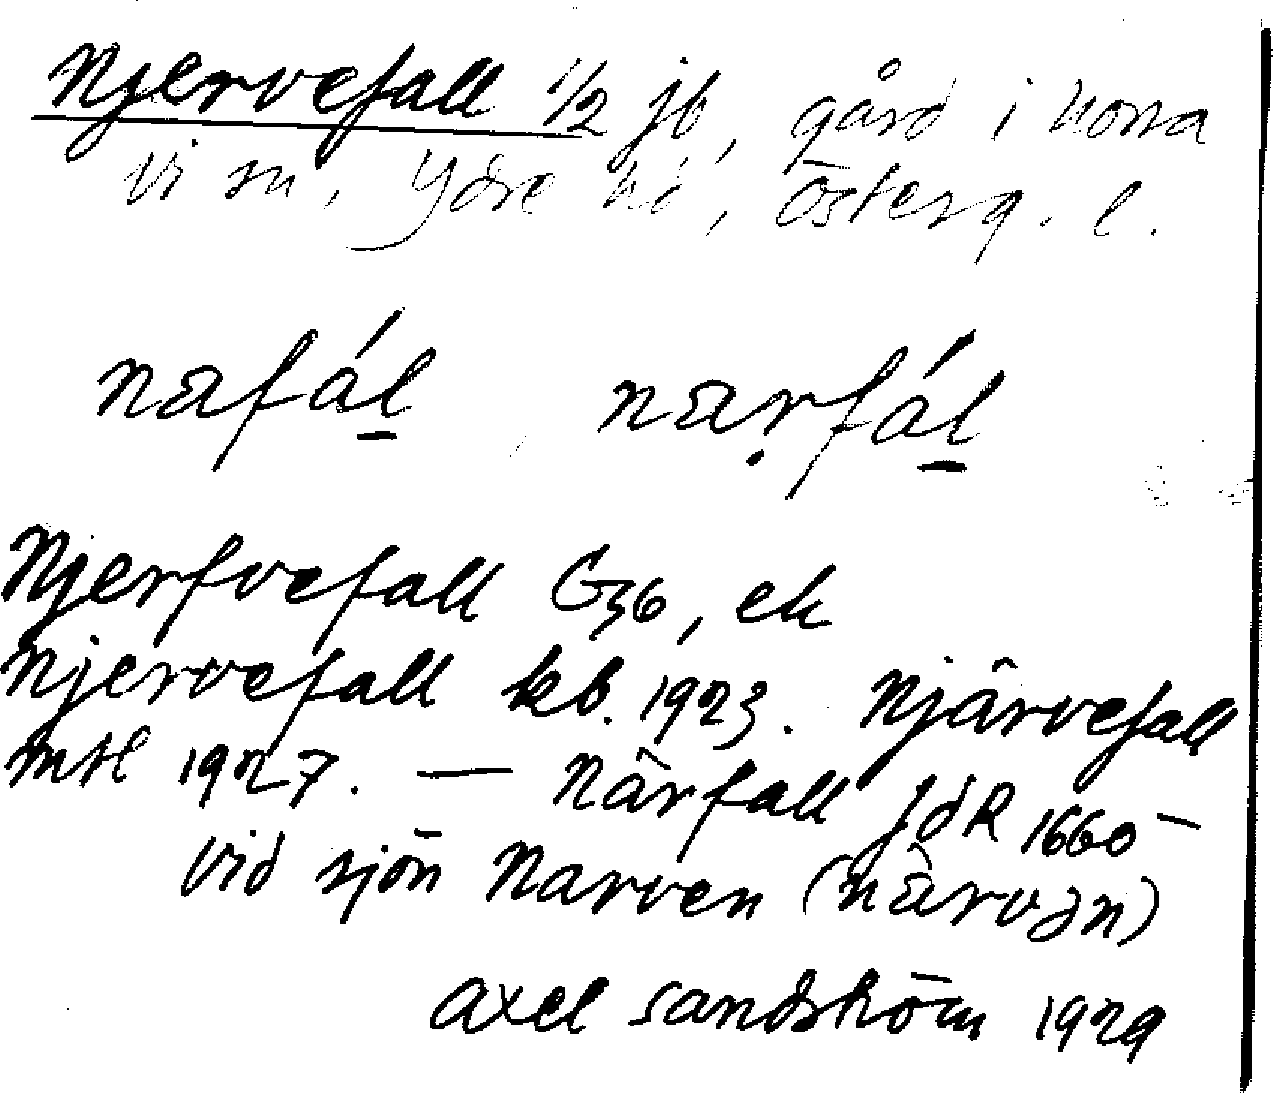 Njervefall 1/2 jb, gård i Norra
Vi sn, Ydre hd, Österg. l.
nafál, narfál
Njerfvefall G36, ek
Njervefall kb. 1923. Njärvefall
mtl 1927. — Närfall JdR 1660 –
vid sjön Narven (nàrvən)
Axel Sandström 1929